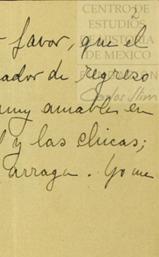 2
CENTRO DE
ESTUDIOS
DE HISTORIA
DE MÉXICO
favor, que el
ador de regreso
muy amables en
l y las chicas;
arraga. Yo me